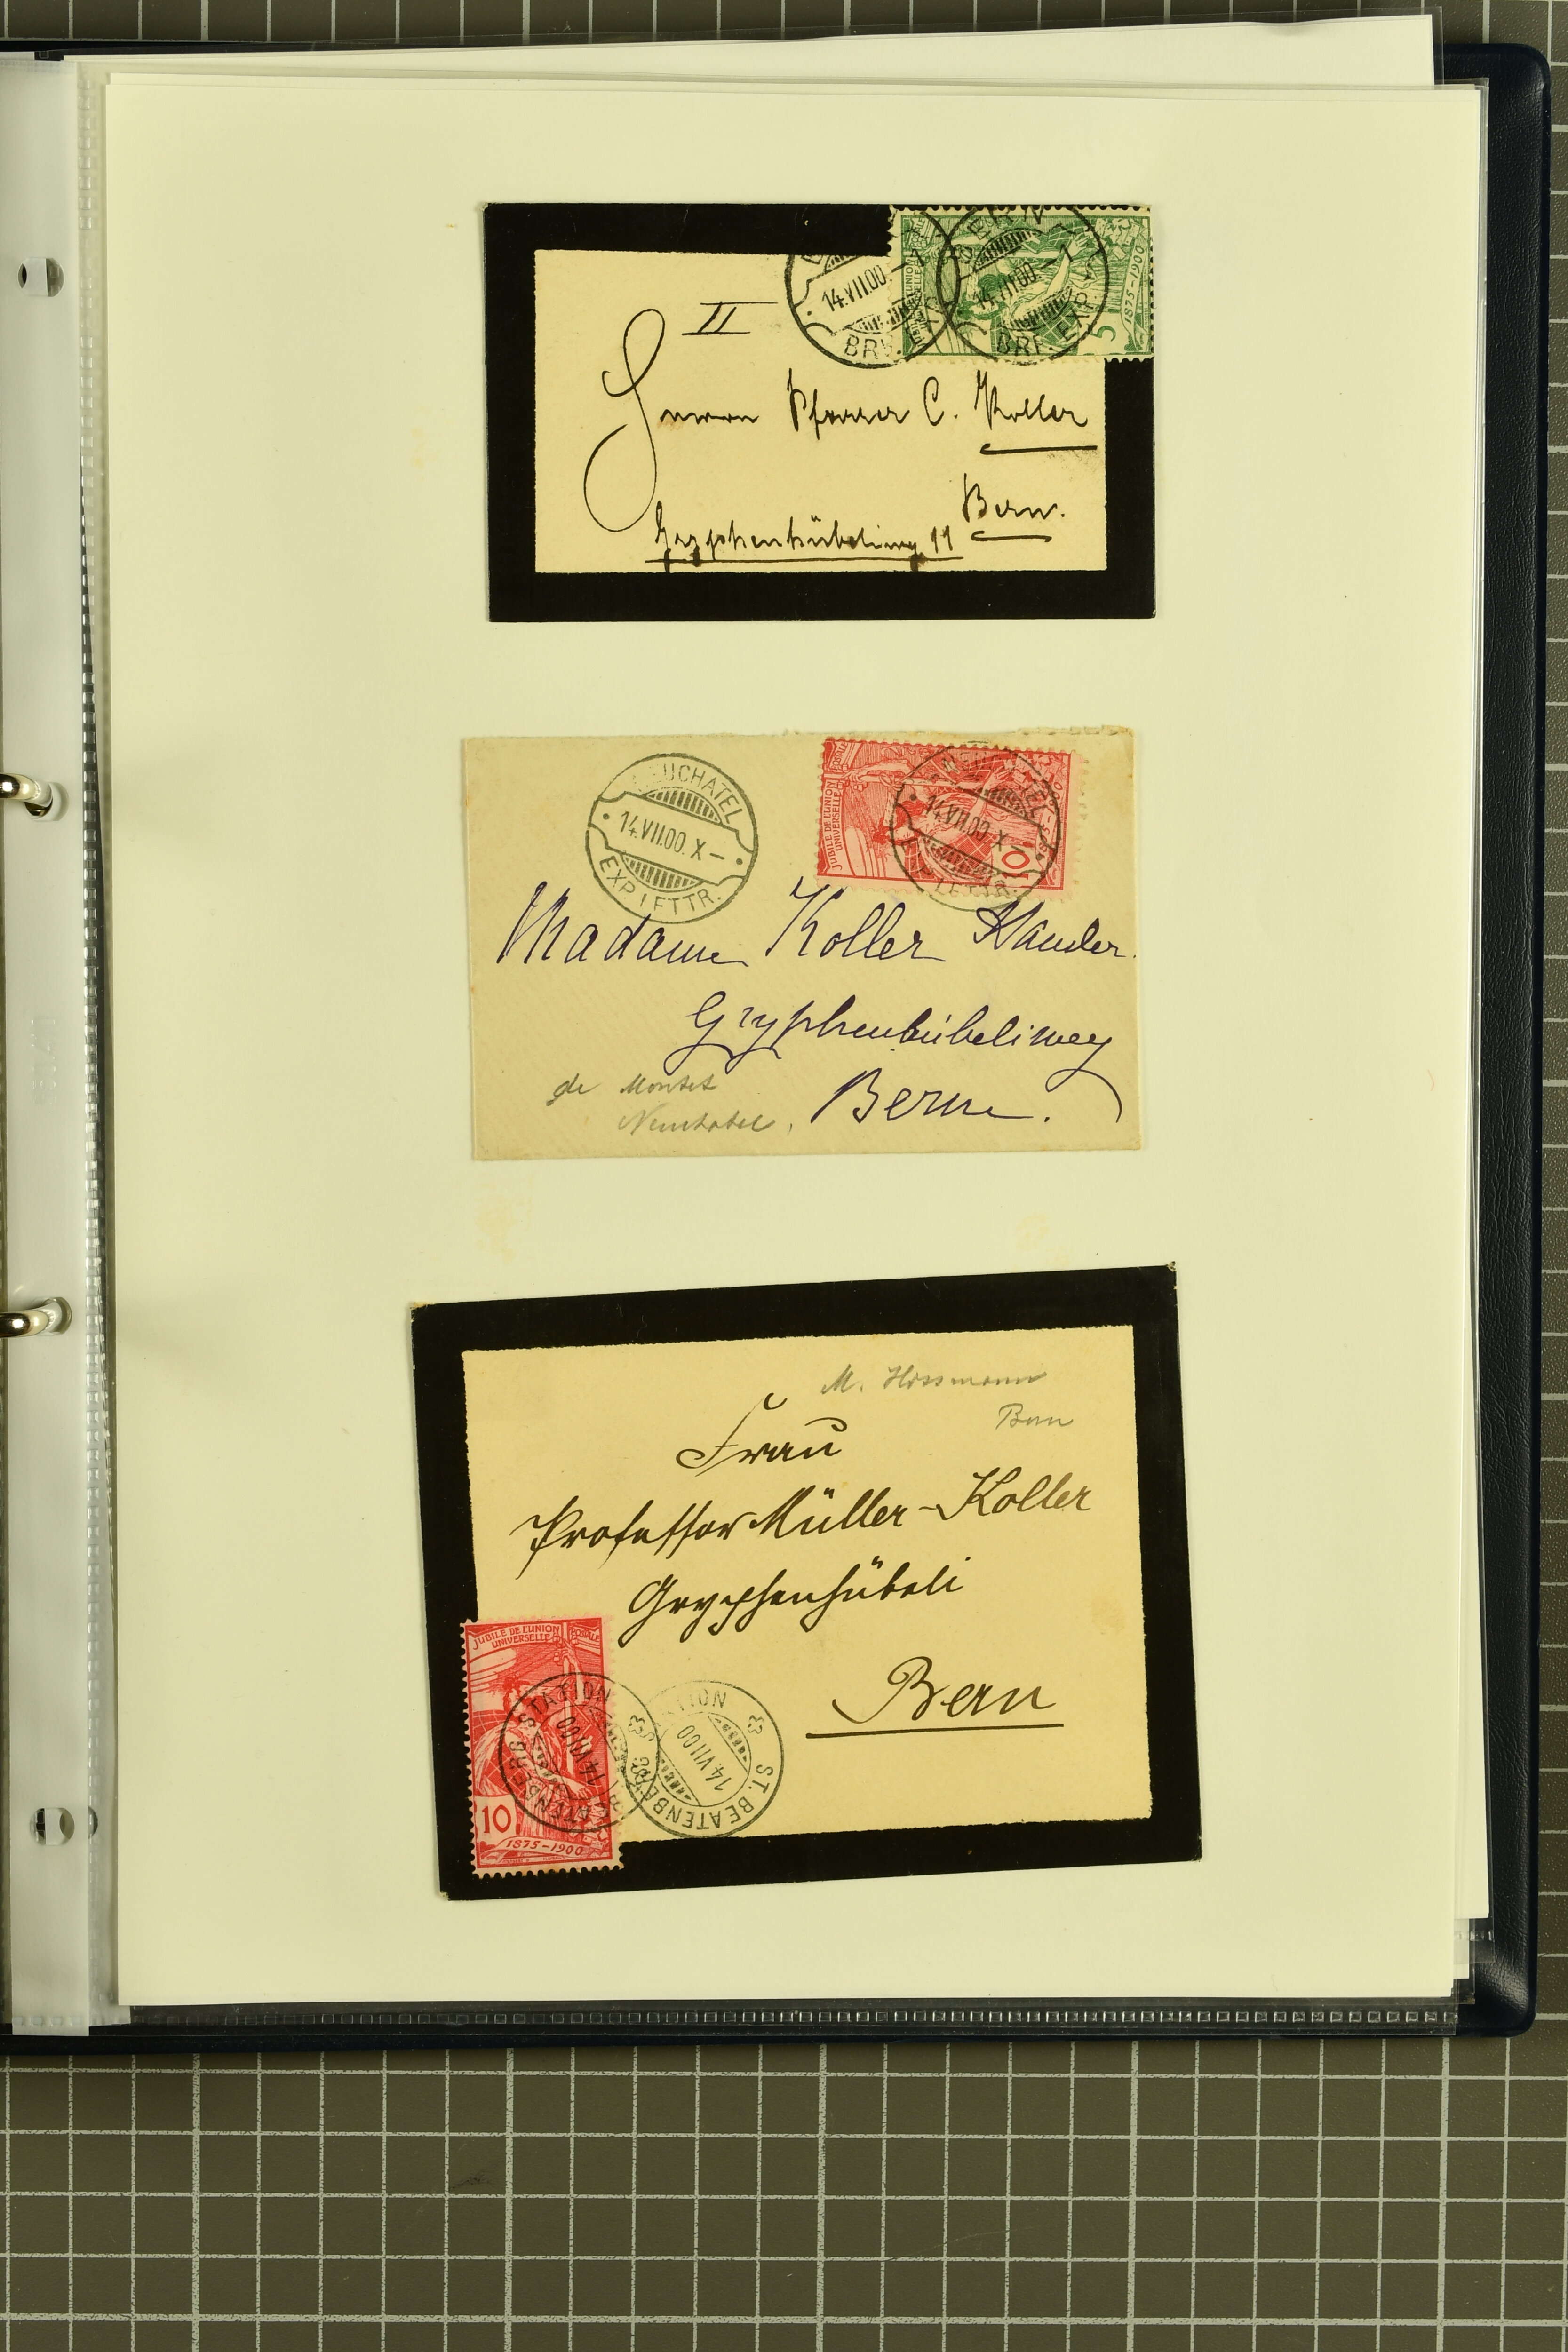 BERN 1
14.VII.00.–1
BRF. EXP.
BERN 1
14.VII.00.–1
BRF. EXP.
UNION
UNIVERSELLE
5
1875-1900
II
Herrn Pfarrer C. Koller
Bern.
Gryphenhübeliweg 11
NEUCHATEL
14.VII.00.X–
EXP. LETTR.
JUBILÉ DE L'UNION
UNIVERSELLE
10
NEUCHATEL
14.VII.00.X–
EXP. LETTR.
Madame Koller
Gryphenhübeliweg
Berne.
de Montet
Neuchatel,
M. Hossmann
Bern
Frau
Professor Müller-Koller
Gryphenhübeli
Bern
JUBILÉ DE L'UNION POSTALE
UNIVERSELLE
10
1875-1900
ST. BEATENBERG STATION
14.VII.00
ST. BEATENBERG STATION
14.VII.00